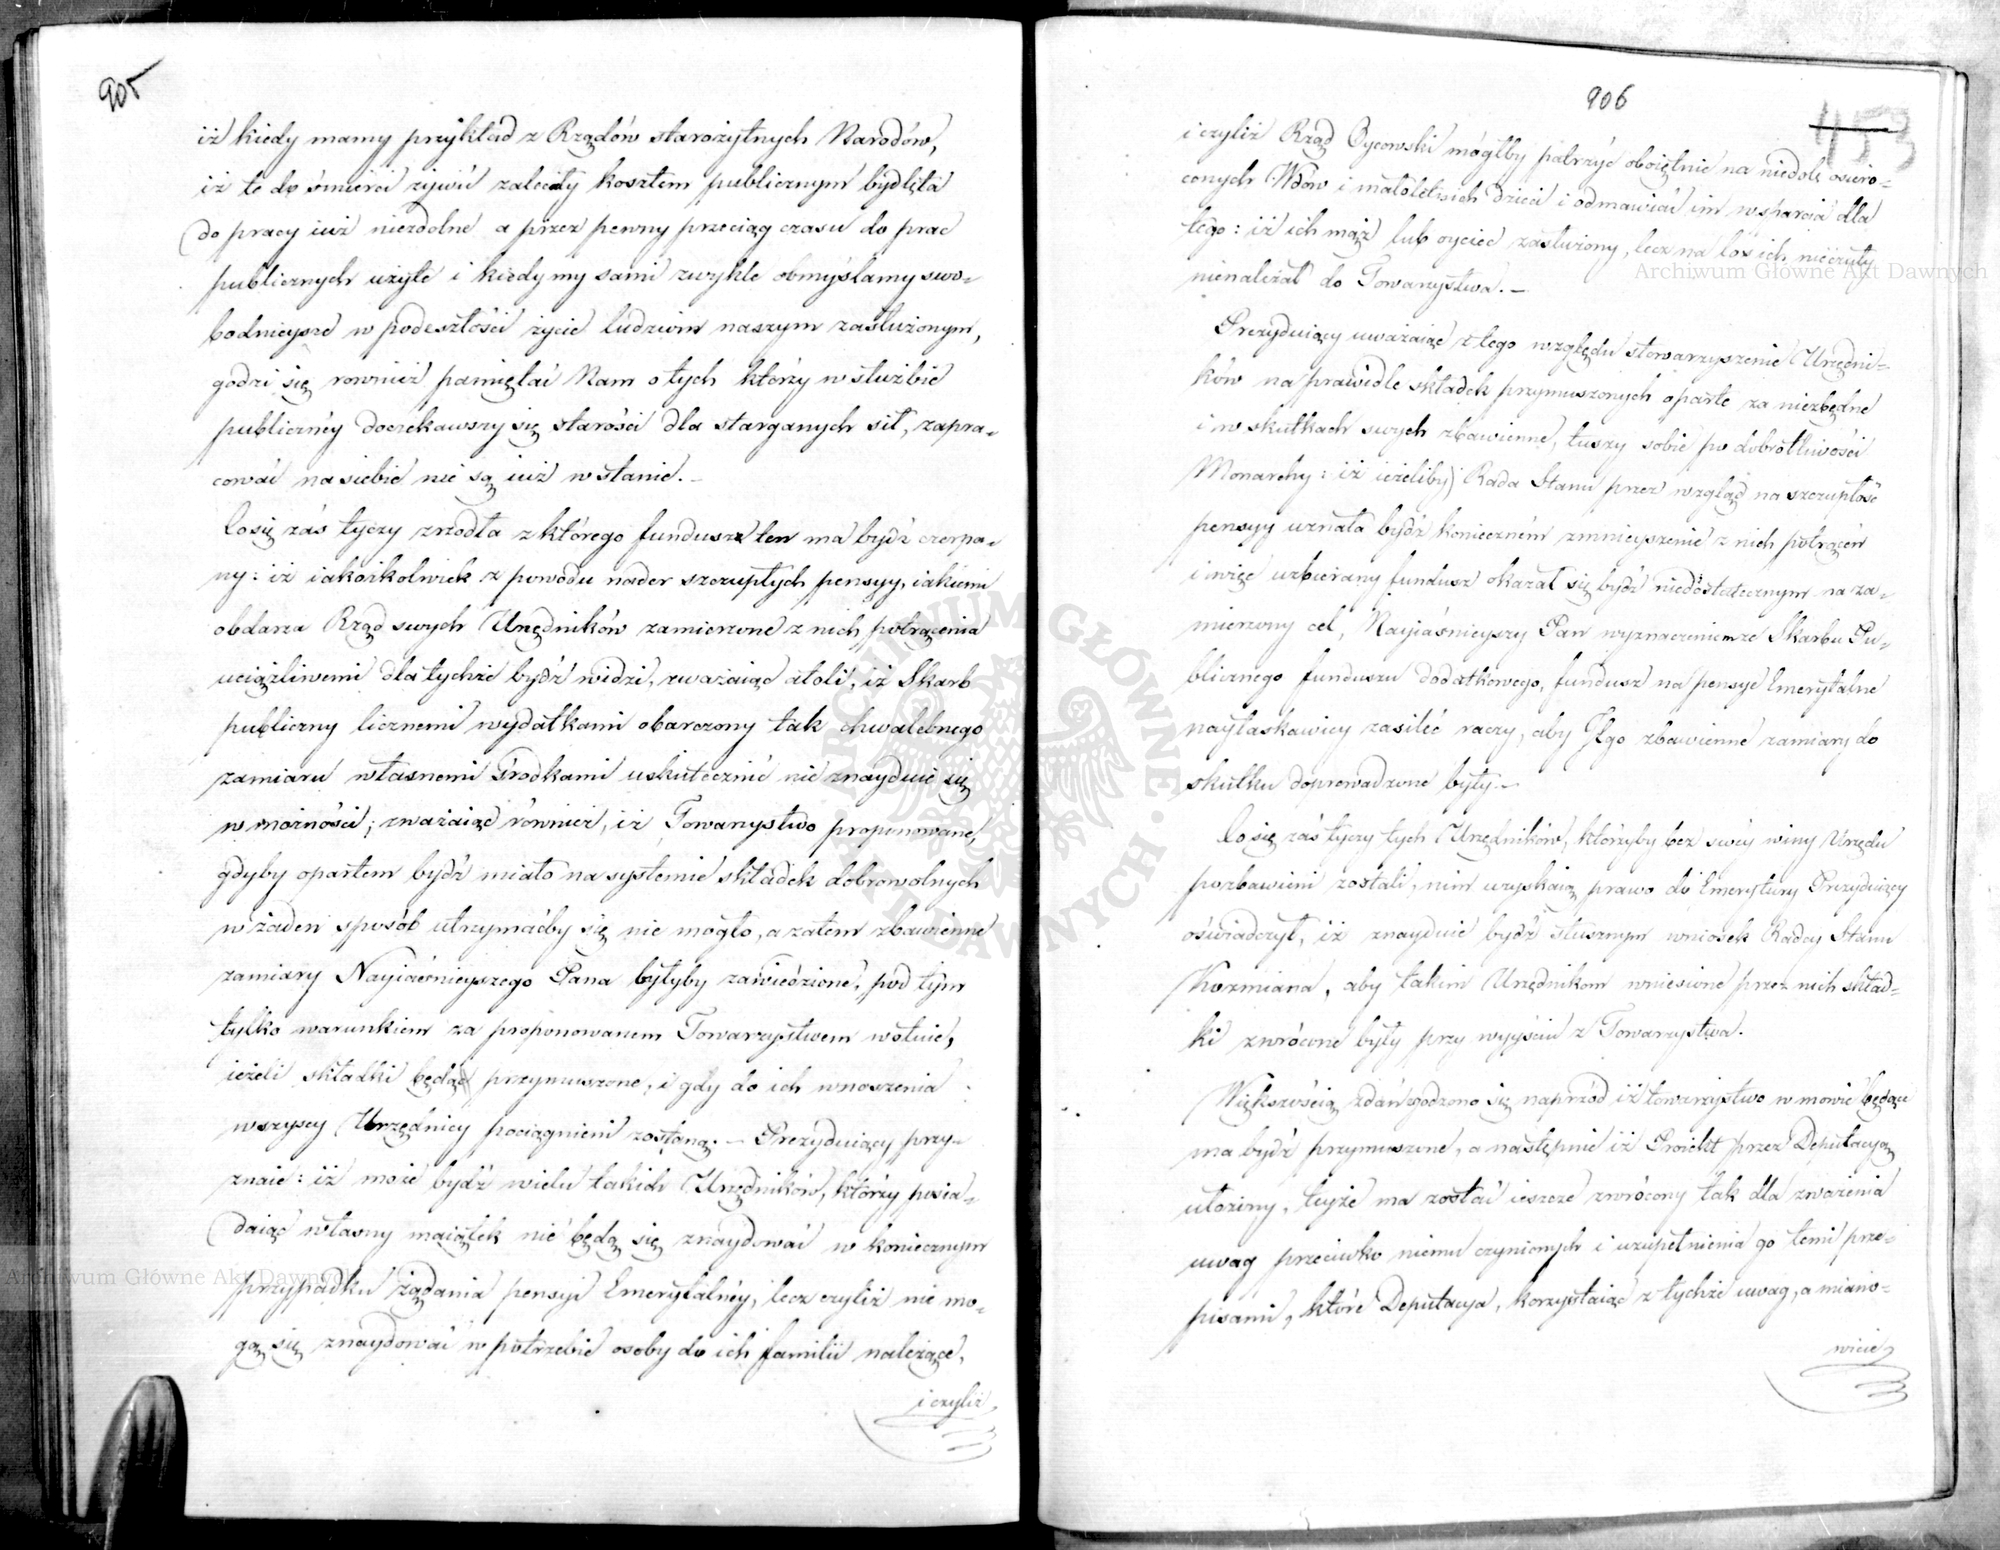 905
iż kiedy mamy przykład z Rządów starożytnych Narodów,
iż te do śmierci żywić zaleciły kosztem publicznym bydlęta
do pracy iuż niezdolne a przez pewny przeciąg czasu do prac
publicznych użyte i kiedy my sami zwykle obmyślamy swo-
bodnieysze w podeszłości życie ludziom naszym zasłużonym,
godzi się rownież pamiętać Nam o tych którzy w służbie
publiczney doczekawszy się starości dla starganych sił, zapra-
cować na siebie nie są iuż w stanie. –
Co się zaś tyczy zrzodła z którego fundusz ten ma bydź czerpa-
ny: iż iakożkolwiek z powodu nader szczupłych pensyy, iakiemi
obdarza Rząd swych Urzędników zamierzone z nich potrącenia
uciążliwemi dla tychże bydź widzi, zważaiąc atoli, iż Skarb
publiczny licznemi wydatkami obarczony tak chwalebnego
zamiaru własnemi środkami uskutecznić nie znayduie się
w możności; zważaiąc również, iż Towarzystwo proponowane,
gdyby opartem bydź miało na systemie składek dobrowolnych
w żaden sposób utrzymaćby się nie mogło, a zatem zbawienne
zamiary Nayiaśnieyszego Pana byłyby zawiedzione, pod tym
tylko warunkiem za proponowanem Towarzystwem wotuie,
ieżeli składki będą przymuszone, i gdy do ich wnoszenia
wszyscy Urzędnicy pociągnieni zostaną. – Prezyduiący przy-
znaie: iż może bydź wielu takich Urzędników, którzy posia-
daiąc własny maiątek nie będą się znaydować w koniecznym
przypadku żądania pensyi Emerytalnéy, lecz czyliż nie mo-
gą się znaydować w potrzebie osoby do ich familii należące,
i czyliż
906
453
i czyliż Rząd Oycowski mógłby patrzyć oboiętnie na niedolę osiero-
conych Wdów i małoletnich dzieci i odmawiać im wsparcia dla
tego: iż ich mąż lub oyciec zasłużony, lecz na los ich nieczuły
nienależał do Towarzystwa. –
Prezyduiący uważaiąc z tego względu stowarzyszenie Urzędni-
ków na prawidle składek przymuszonych oparte za niezbędne
i w skutkach swych zbawienne, tuszy sobie po dobrotliwości
Monarchy: iż ieżeliby Rada Stanu przez wzgląd na szczupłość
pensyy uznała bydź koniecznem zmnieyszenie z nich potrąceń
i więc uzbierany fundusz okazał się bydź niedostatecznym na za-
mierzony cel, Nayiaśnieyszy Pan wyznaczeniem ze Skarbu Pu-
blicznego funduszu dodatkowego, fundusz na pensye Emerytalne
nayłaskawiey zasilić raczy, aby Jego zbawienne zamiary do
skutku doprowadzone były. –
Co się zaś tyczy tych Urzędników, którzyby bez swéy winy Urzędu
pozbawieni zostali, nim uzyskaią prawo do Emerytury Prezyduiący
oświadczył, iż znayduie bydź słusznym wniosek Radcy Stanu
Kozmiana, aby takim Urzędnikom wniesione przez nich skład-
ki zwrócone były przy wyyściu z Towarzystwa.
Większością zdań zgodzono się naprzód iż towarzystwo w mowie będące
ma bydź przymuszone, a następnie iż Proiekt przez Deputacyą
ułożony, teyże ma zostać ieszcze zwrócony tak dla zważenia
uwag przeciwko niemu czynionych i uzupełnienia go temi prze-
pisami, które Deputacya, korzystaiąc z tychże uwag, a miano-
wicie
Archiwum Główne Akt Dawnych
Archiwum Główne Akt Dawnych
ARCHIWUM GŁÓWNE AKT DAWNYCH